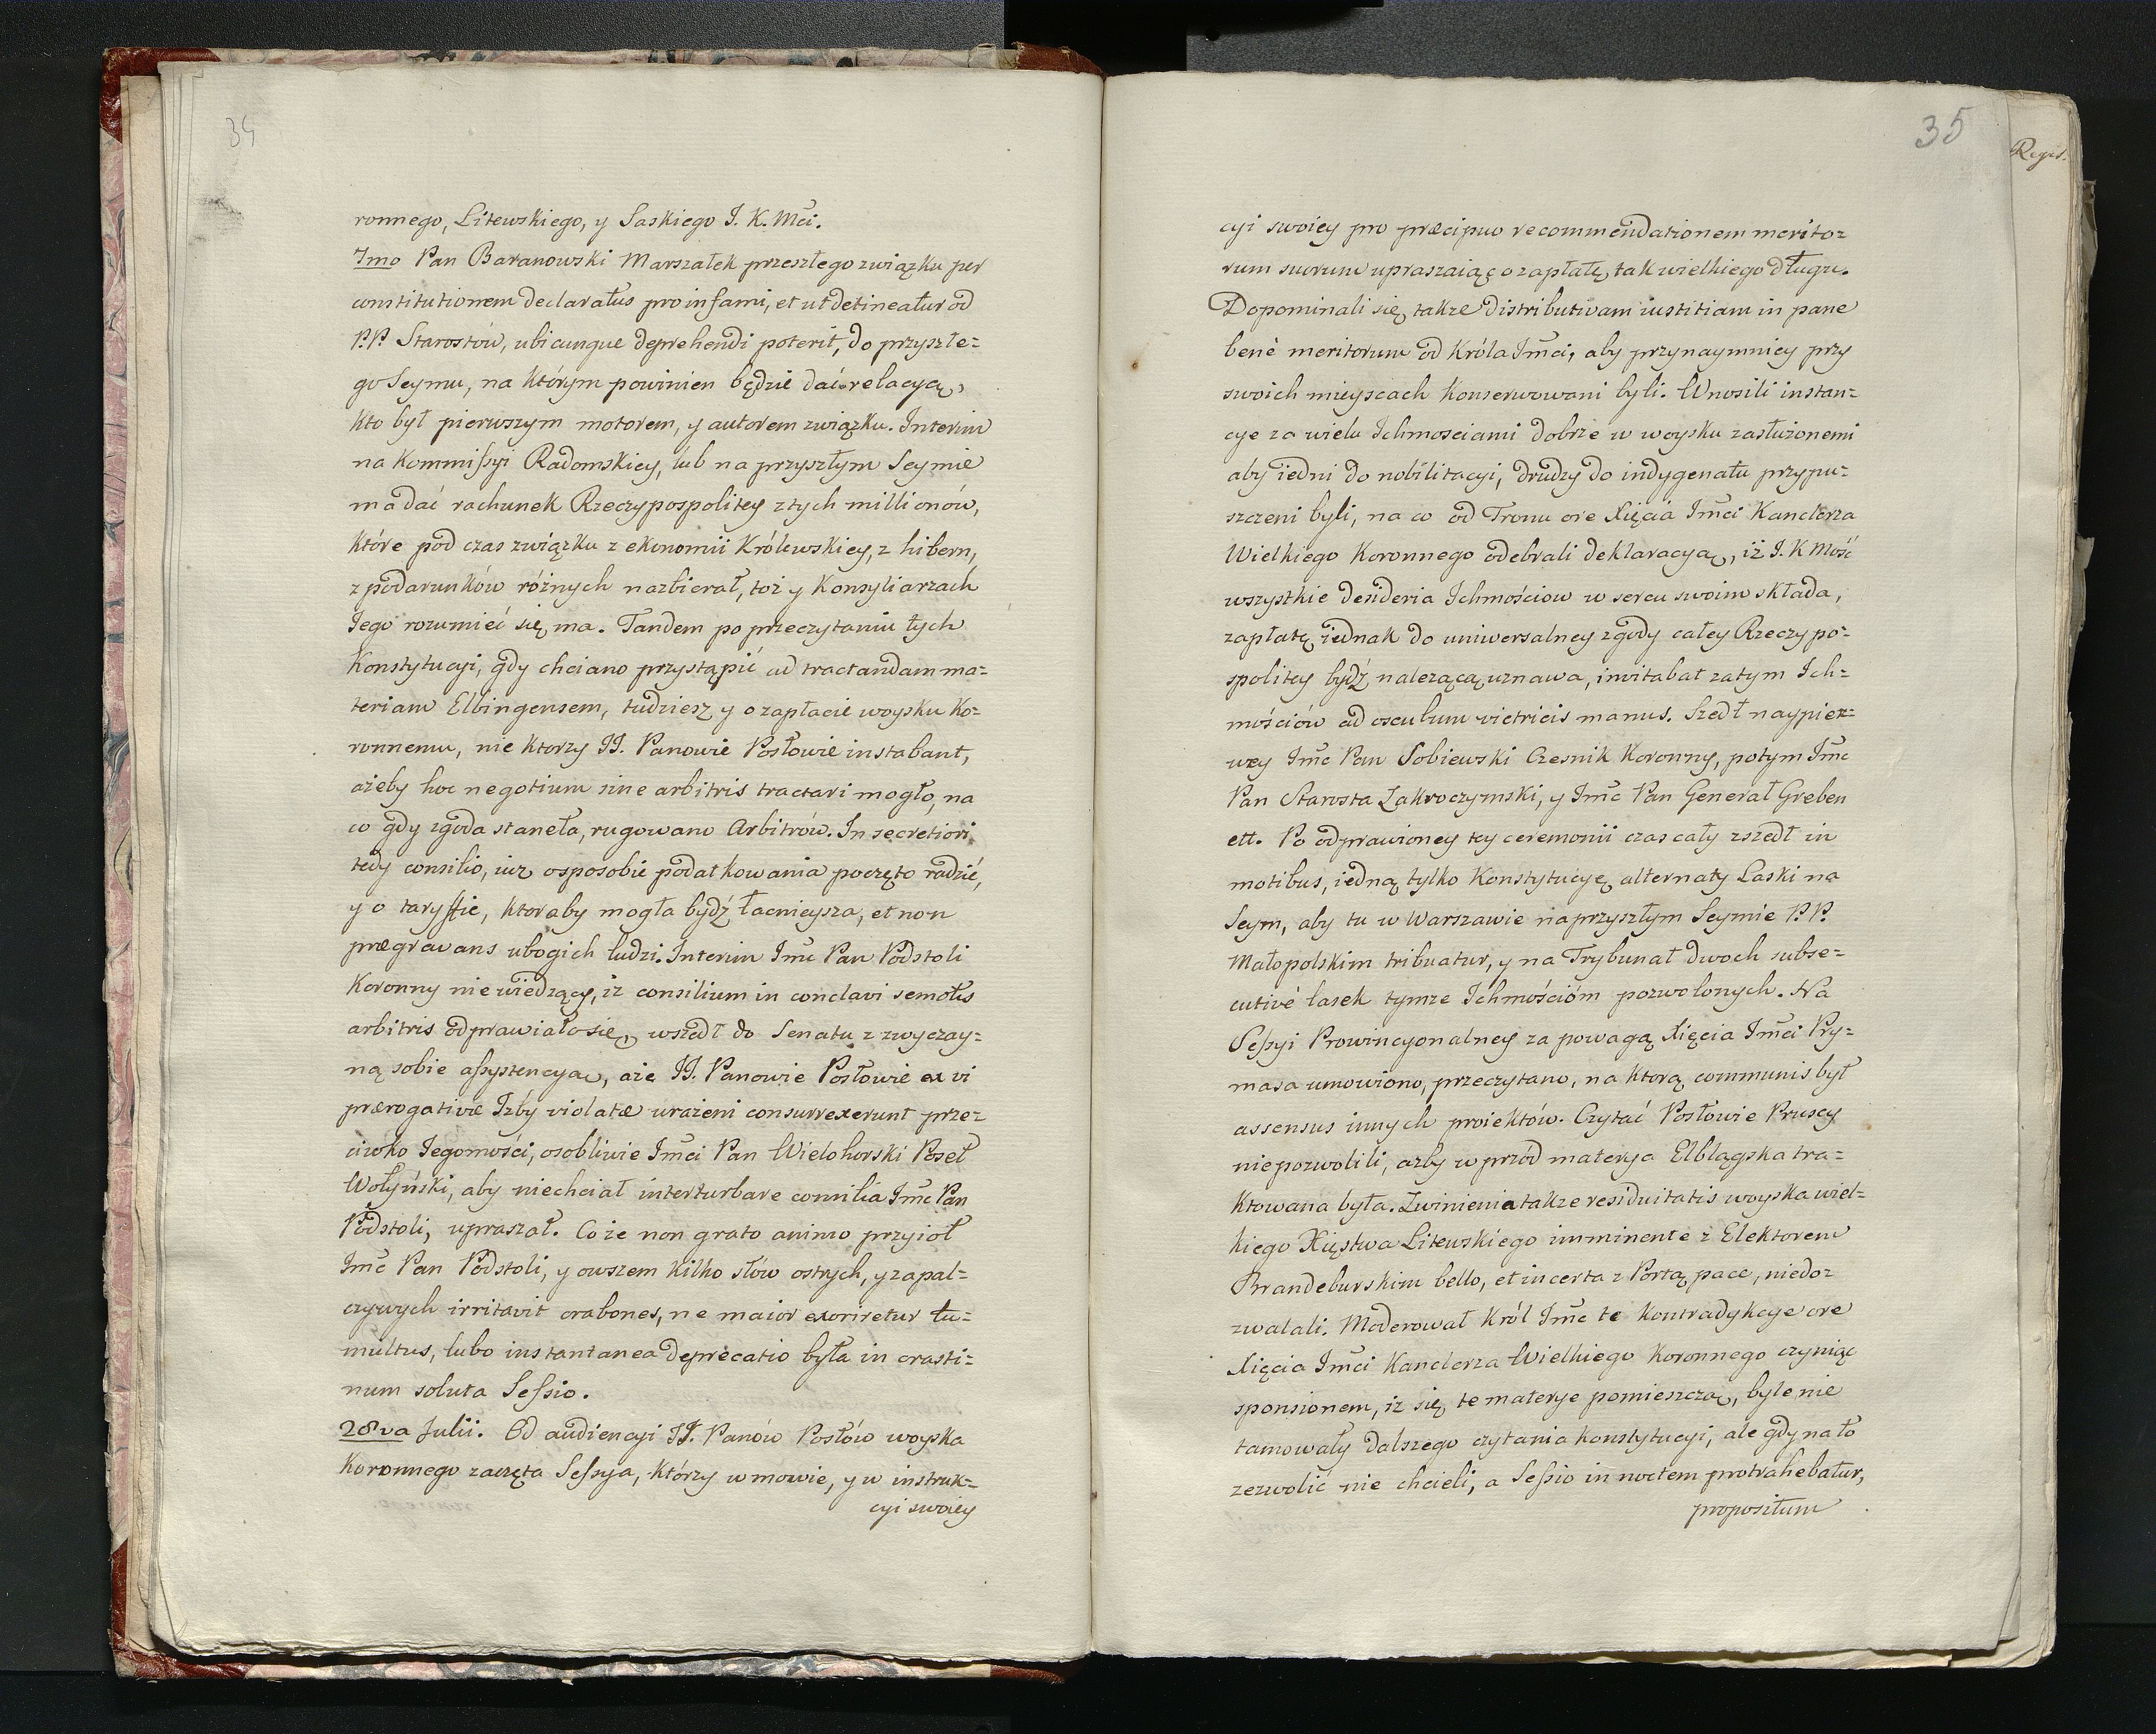 34
ronnego, Litewskiego, y Saskiego J. K. Mći.
7mo Pan Baranowski Marszałek przeszłego związku per
constitutionem declaratus pro infami, et ut detineatur od
P.P. Starostów, ubicunque deprehendi poterit, do przyszłe=
go Seymu, na którym powinien będzie dać relacyą,
kto był pierwszym motorem, y autorem związku. Interim
na Kommissyi Radomskiey, lub na przyszłym Seymie
ma dać rachunek Rzeczypospolitey z tych millionów,
które pod czas związku z ekonomii Królewskiey, z hibern,
z podarunków różnych nazbierał, toż y Konsyliarzach
Jego rozumieć się ma. Tandem po przeczytaniu tych
Konstytucyi, gdy chciano przystąpić ad tractandam ma=
teriam Elbingensem, tudziesz y o zapłacie woysku Ko=
ronnemu, nie ktorzy JJ. Panowie Posłowie instabant,
ażeby hoc negotium sine arbitris tractari mogło, na
co gdy zgoda staneła, rugowano Arbitrów. In secretiori
tedy consilio, iuż o sposobie podatkowania poczęto radzić,
y o taryffie, ktoraby mogła bydź łacnieysza, et non
prægravans ubogich ludzi. Interim Imć Pan Podstoli
Koronny nie wiedzący, iż consilium in conclavi semotis
arbitris odprawiało się, wszedł do Senatu z zwyczay=
ną sobie assystencyą, aże JJ. Panowie Posłowie ex vi
prærogativæ Izby violatæ urażeni consurrexerunt prze=
ciwko Jegomości, osobliwie Imći Pan Wielohorski Poseł
Wołyński, aby niechciał interturbare consilia Imć Pan
Podstoli, upraszał. Co że non grato animo przyioł
Imć Pan Podstoli, y owszem kilko słów ostrych, y zapal=
czywych irritavit crabones, ne maior exoriretur tu=
multus, lubo instantanea deprecatio była in crasti=
num soluta Sessio.
28va Julii. Od audiencyi JJ. Panów Posłów woyska
Koronnego zaczęta Sessya, którzy w mowie, y w instruk=
cyi swoiey
35
Regis.
cyi swoiey pro præcipuo recommendationem merito=
rum suorum upraszaiąc o zapłatę, tak wielkiego długu.
Dopominali się, takze distributivam iustitiam in pane
benè meritorum od Króla Imći, aby przynaymniey przy
swoich mieyscach konserwowani byli. Wnosili instan=
cye za wielu Ichmosciami dobrze w woysku zasłużonemi
aby iedni do nobilitacyi, drudzy do indygenatu przypu=
szczeni byli, na co od Tronu ore Xięcia Imći Kanclerza
Wielkiego Koronnego odebrali deklaracyą, iż J. K Mość
wszystkie desideria Ichmościow w sercu swoim składa,
zapłatę iednak do uniwersalney zgody całey Rzeczypo=
spolitey bydź nalezącą uznawa, invitabat zatym Ich=
mościów ad osculum victricis manus. Szedł naypier=
wey Imć Pan Sobiewski Czesnik Koronny, potym Imć
Pan Starosta Zakroczymski, y Imć Pan Generał Greben
ett. Po odprawioney tey ceremonii czas cały zszedł in
motibus, iedną tylko Konstytucyę alternaty Laski na
Seym, aby tu w Warszawie na przyszłym Seymie P.P.
Małopolskim tribuatur, y na Trybunał dwoch subse=
cutivè lasek tymże Ichmościóm pozwolonych. Na
Sessyi Prowincyonalney za powagą Xięcia Imći Pry=
masa umowiono, przeczytano, na ktorą communis był
assensus innych proiektów. Czytać Posłowie Pruscy
niepozwolili, azby w przód materya Elblągska tra=
ktowana była. Zwinienia takze residuitatis woyska wiel=
kiego Xięstwa Litewskiego imminente z Elektorem
Brandeburskim bello, et incerta z Portą pace, niedo=
zwalali. Moderował Król Imć te kontradykcye ore
Xięcia Imći Kanclerza Wielkiego Koronnego czyniąc
sponsionem, iż się te materye pomieszczą, byle nie
tamowały dalszego czytania konstytucyi, ale gdy na to
zezwolić nie chcieli, a Sessio in noctem protrahebatur,
propositum